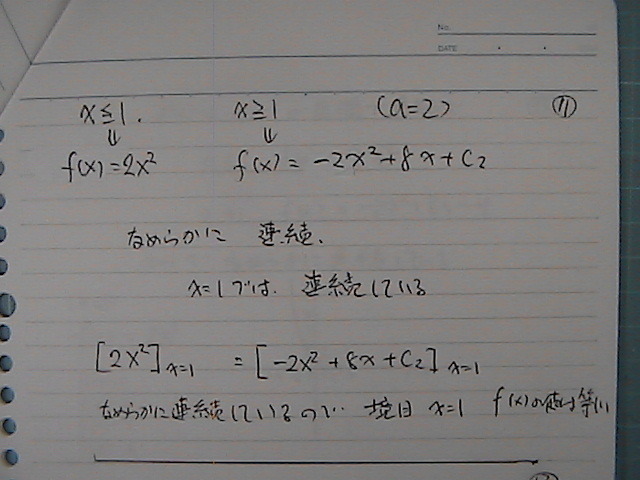 No.
DATE
x≦1. x≧1 (a=2) ⑪
⇓ ⇓
f(x)=2x² f(x)=-2x²+8x+C₂
なめらかに 連続、
x=1では、連続している
[2x²]x=1 = [-2x²+8x+C₂]x=1
なめらかに連続しているので 境目 x=1 f(x)の値は等しい